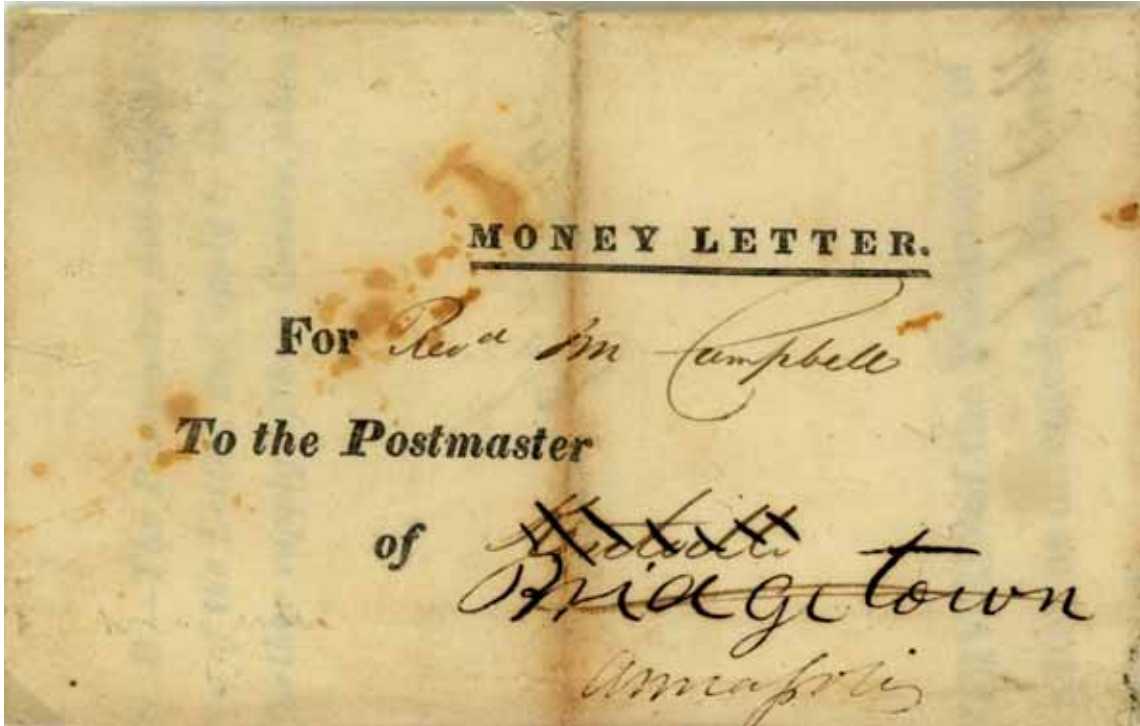 MONEY LETTER.
For Revd Wm Campbell
To the Postmaster
of
Bridgetown
Annapolis